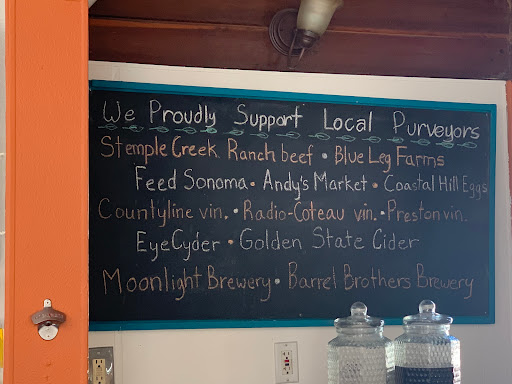 We Proudly Support Local Purveyors
Stemple Creek Ranch beef • Blue Leg Farms
Feed Sonoma • Andy's Market • Coastal Hill Eggs
Countyline vin. • Radio-Coteau vin. • Preston vin.
EyeCyder • Golden State Cider
Moonlight Brewery • Barrel Brothers Brewery